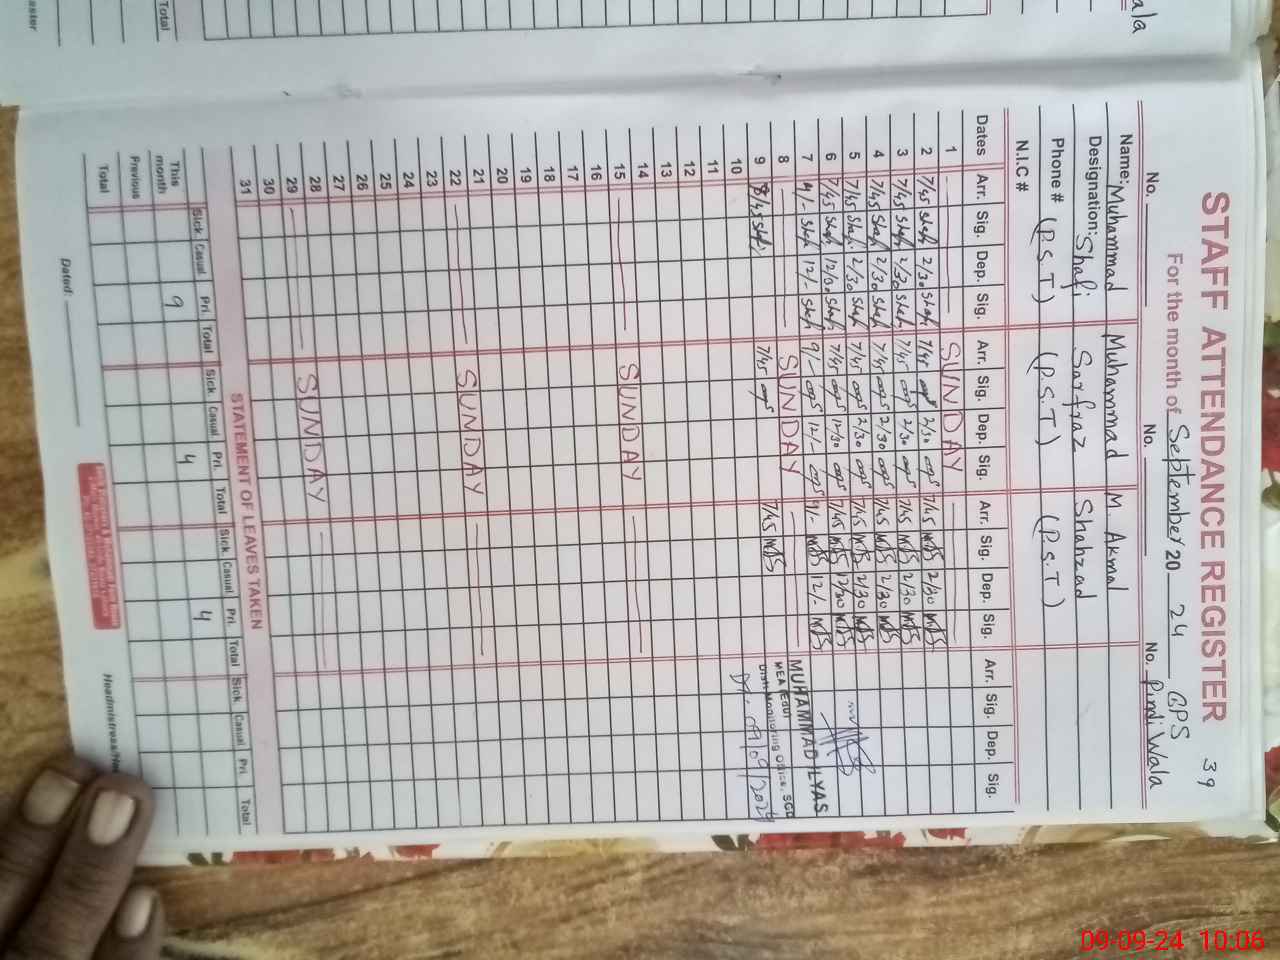 39
STAFF ATTENDANCE REGISTER
For the month of September 20 24 GPS
No. No. No. Pindi Wala
Name: Muhammad Muhammad M. Akmal
Designation: Shafi Sarfraz Shahzad
Phone # (P.S.T) (P.S.T) (P.S.T)
N.I.C #
Dates Arr. Sig. Dep. Sig. Arr. Sig. Dep. Sig. Arr. Sig. Dep. Sig. Arr. Sig. Dep. Sig.
1 SUNDAY
2 7/45 Shafi 2/30 Shafi 7/45 2/30 7/45 2/30
3 7/45 Shafi 2/30 Shafi 7/45 2/30 7/45 2/30
4 7/45 Shafi 2/30 Shafi 7/45 2/30 7/45 2/30
5 7/45 Shafi 2/30 Shafi 7/45 2/30 7/45 2/30
6 7/45 Shafi 12/30 Shafi 7/45 12/30 7/45 12/30
7 9/- Shafi 12/- Shafi 9/- 12/- 9/- 12/- MUHAMMAD ILYAS
8 SUNDAY MEA (Edu)
Distt. Monitoring Office, SGD
9 8/45 Shafi 7/45 7/45
Dt. 09/09/2024
10
11
12
13
14
15 SUNDAY
16
17
18
19
20
21
22 SUNDAY
23
24
25
26
27
28
29 SUNDAY
30
31
STATEMENT OF LEAVES TAKEN
Sick Casual Pri. Total Sick Casual Pri. Total Sick Casual Pri. Total Sick Casual Pri. Total
This month 9 4 4
Previous
Total
Dated:
Headmistress/
Total
aster
ala
09-09-24 10:06